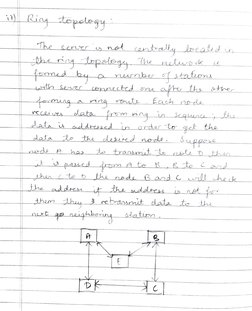 iii) Ring topology :
The server is not centrally located in
the ring topology. The network is
formed by a number of stations
with server connected one after the other
forming a ring route. Each node
receives data from ring in sequence, the
data is addressed in order to get the
data to the desired node. Suppose
node A has to transmit to node D then
it is passed from A to B, B to C and
then C to D the node B and C will check
the address if the address is not for
them they retransmit data to the
next neighboring station.
A B
E
D C